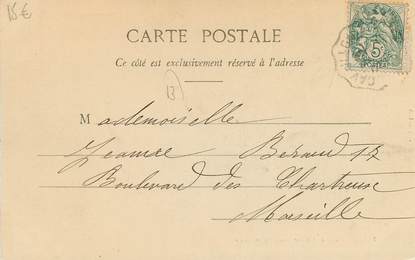 15€
CARTE POSTALE
Ce côté est exclusivement réservé à l'adresse
13
Mademoiselle
Jeanne Beraud 17
Boulevard des Chartreux
Marseille
5c
POSTES